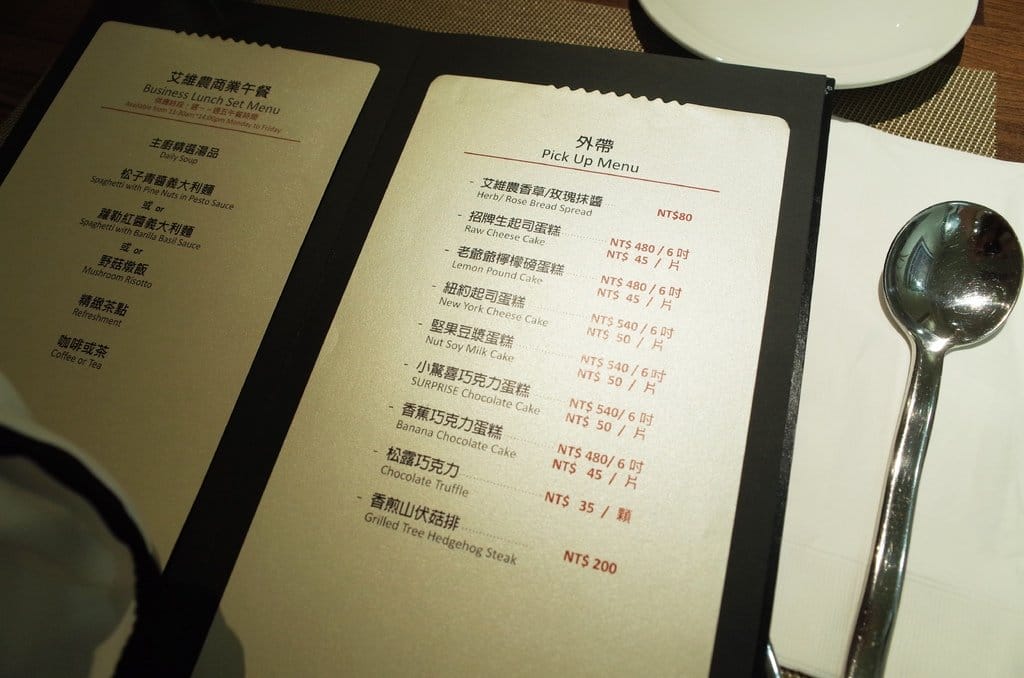 艾維農商業午餐
Business Lunch Set Menu
供應時段：週一～週五午餐時間
Available from 11:30am~14:00pm Monday to Friday
主廚精選湯品
Daily Soup
松子青醬義大利麵
Spaghetti with Pine Nuts in Pesto Sauce
或 or
羅勒紅醬義大利麵
Spaghetti with Barilla Basil Sauce
或 or
野菇燉飯
Mushroom Risotto
精緻茶點
Refreshment
咖啡或茶
Coffee or Tea
外帶
Pick Up Menu
- 艾維農香草/玫瑰抹醬 NT$80
Herb/ Rose Bread Spread
- 招牌生起司蛋糕 NT$ 480 / 6 吋
Raw Cheese Cake NT$ 45 / 片
- 老爺爺檸檬磅蛋糕 NT$ 480 / 6 吋
Lemon Pound Cake NT$ 45 / 片
- 紐約起司蛋糕 NT$ 540 / 6 吋
New York Cheese Cake NT$ 50 / 片
- 堅果豆漿蛋糕 NT$ 540 / 6 吋
Nut Soy Milk Cake NT$ 50 / 片
- 小驚喜巧克力蛋糕 NT$ 540/ 6 吋
SURPRISE Chocolate Cake NT$ 50 / 片
- 香蕉巧克力蛋糕 NT$ 480/ 6 吋
Banana Chocolate Cake NT$ 45 / 片
- 松露巧克力 NT$ 35 / 顆
Chocolate Truffle
- 香煎山伏菇排 NT$ 200
Grilled Tree Hedgehog Steak